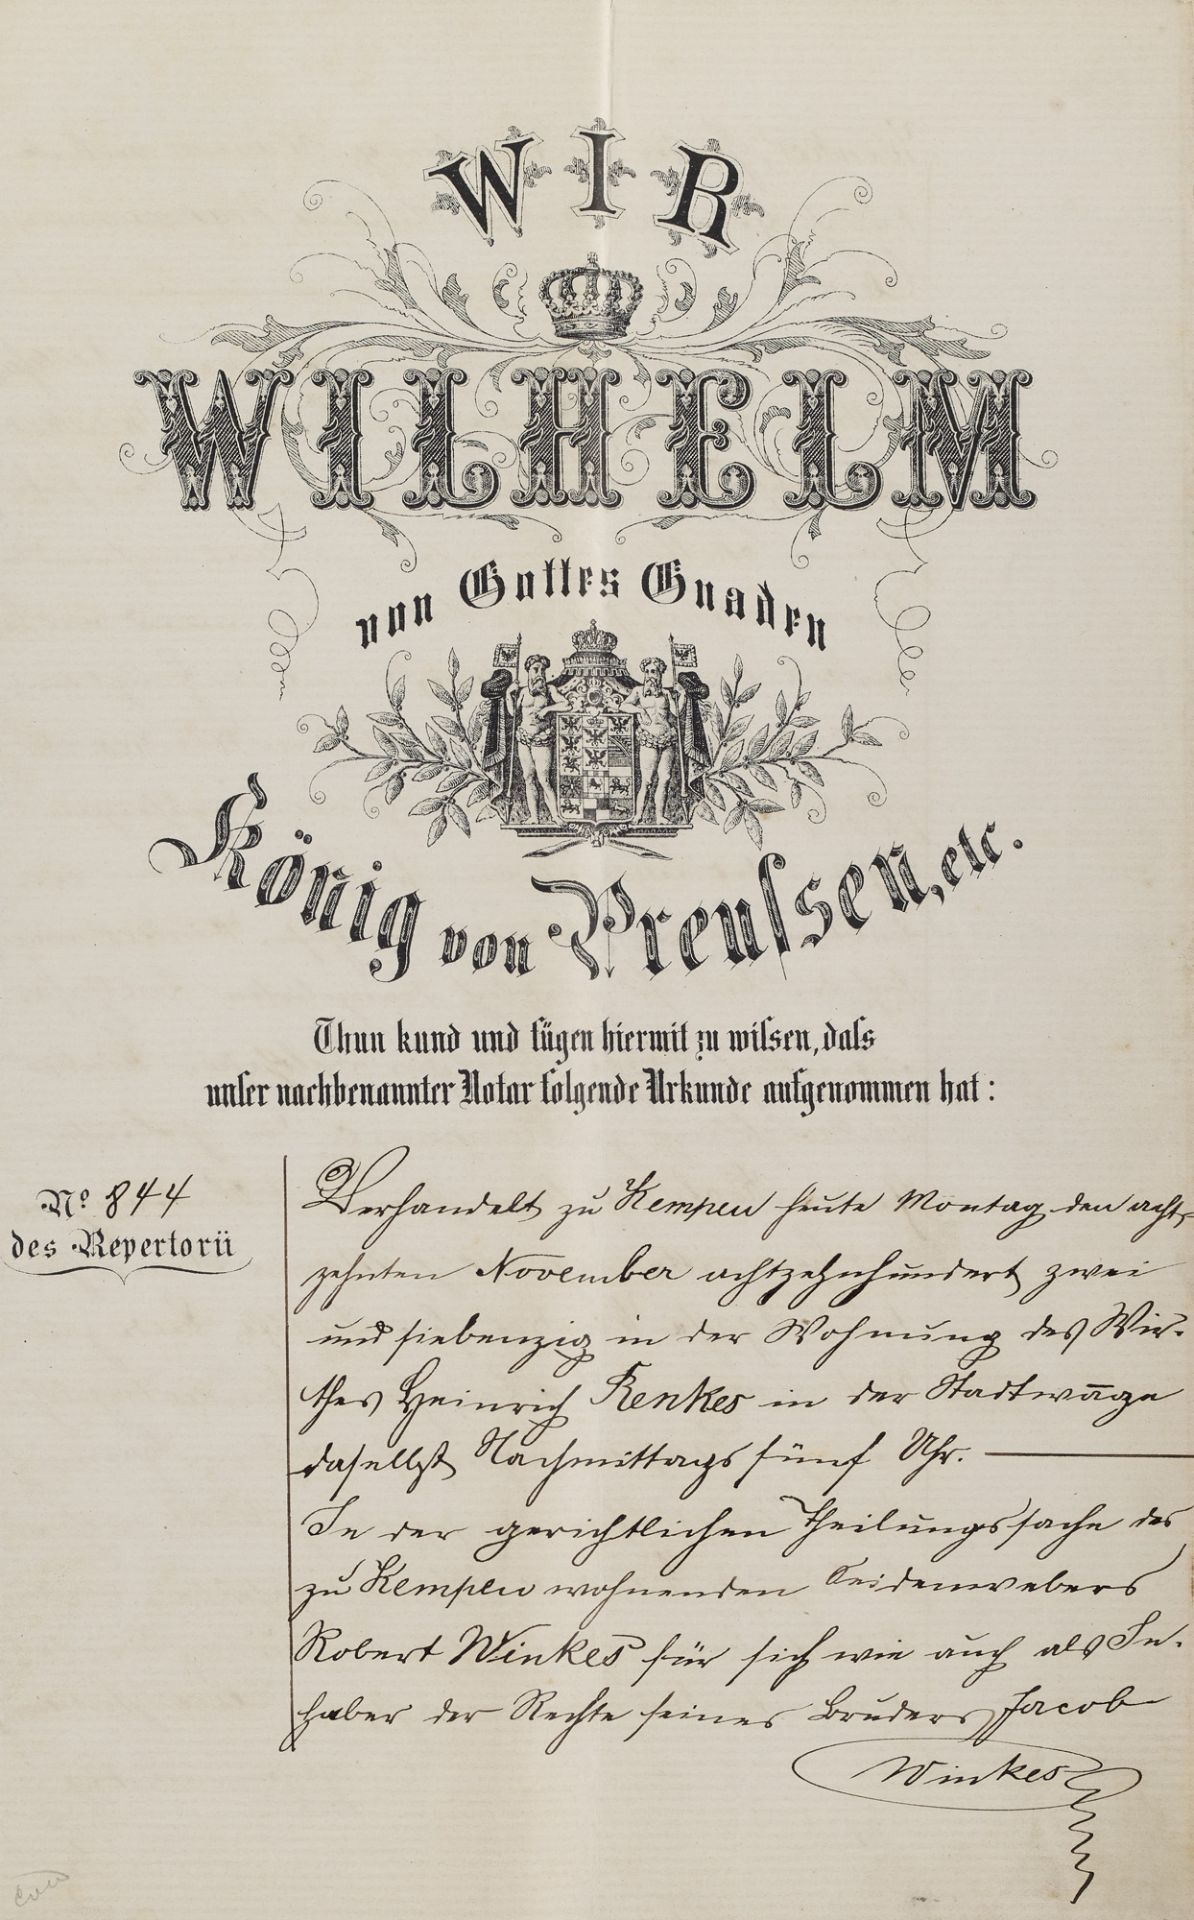 WIR
WILHELM
von Gottes Gnaden
König von Preuſsen, etc.
Thun kund und fügen hiermit zu wiſsen, daſs
unſer nachbenannter Notar folgende Urkunde aufgenommen hat:
No 844
des Repertorii
Verhandelt zu Kempen heute Montag den acht-
zehnten November achtzehnhundert zwei
und siebenzig in der Wohnung des Wir-
thes Heinrich Renkes in der Stadtwaage
daselbst Nachmittags fünf Uhr.
In der gerichtlichen Theilungssache des
zu Kempen wohnenden Seidenwebers
Robert Winkes für sich wie auch als In-
haber der Rechte seines Bruders Jacob
Winkes